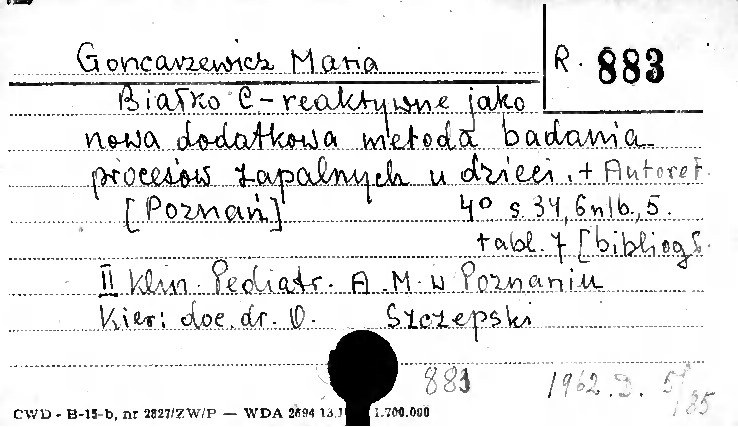 Goncarzewicz Maria
R. 883
Białko C-reaktywne jako
nowa dodatkowa metoda badania
procesów zapalnych u dzieci. + Autoref.
[Poznań] 4° s. 34, 6 nlb., 5.
tabl. 7 [bibliogr.
II Klin. Pediatr. A.M. w Poznaniu
Kier: doc. dr. O. Szczepski
883 1962.D. 5/85
CWD - B-15-b, nr 2827/ZW/P — WDA 2694 1.700.000